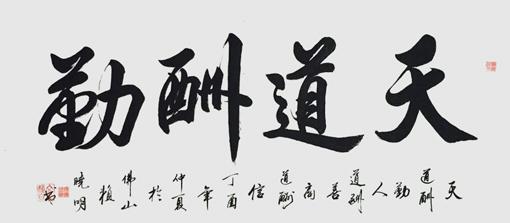 天道酬勤
天道酬勤人道酬善商道酬信丁酉年仲夏於佛山 晓明